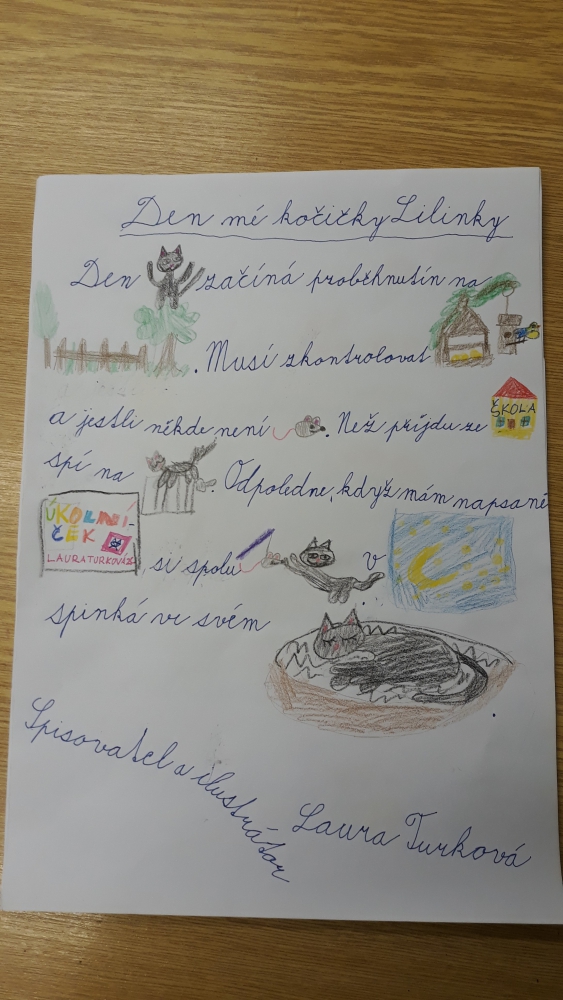 Den mé kočičky Lilinky
Den začíná proběhnutín na
. Musí zkontrolovat
a jestli někde není . Než příjdu ze ŠKOLA
spí na . Odpoledne, když mám napsané
ÚKOLNÍ-
ČEK
LAURA TURKOVÁ si spolu . v
spinká ve svém .
Spisovatel a ilustrátor
Laura Turková